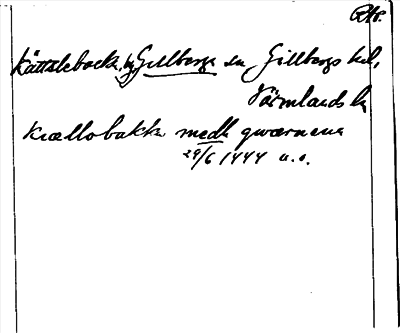 Rkr.
Kättslebacka, by, Gillberga sn Gillbergs hd,
Värmlands l.
Krællobakka medh qwærnena
29/6 1444 a.o.